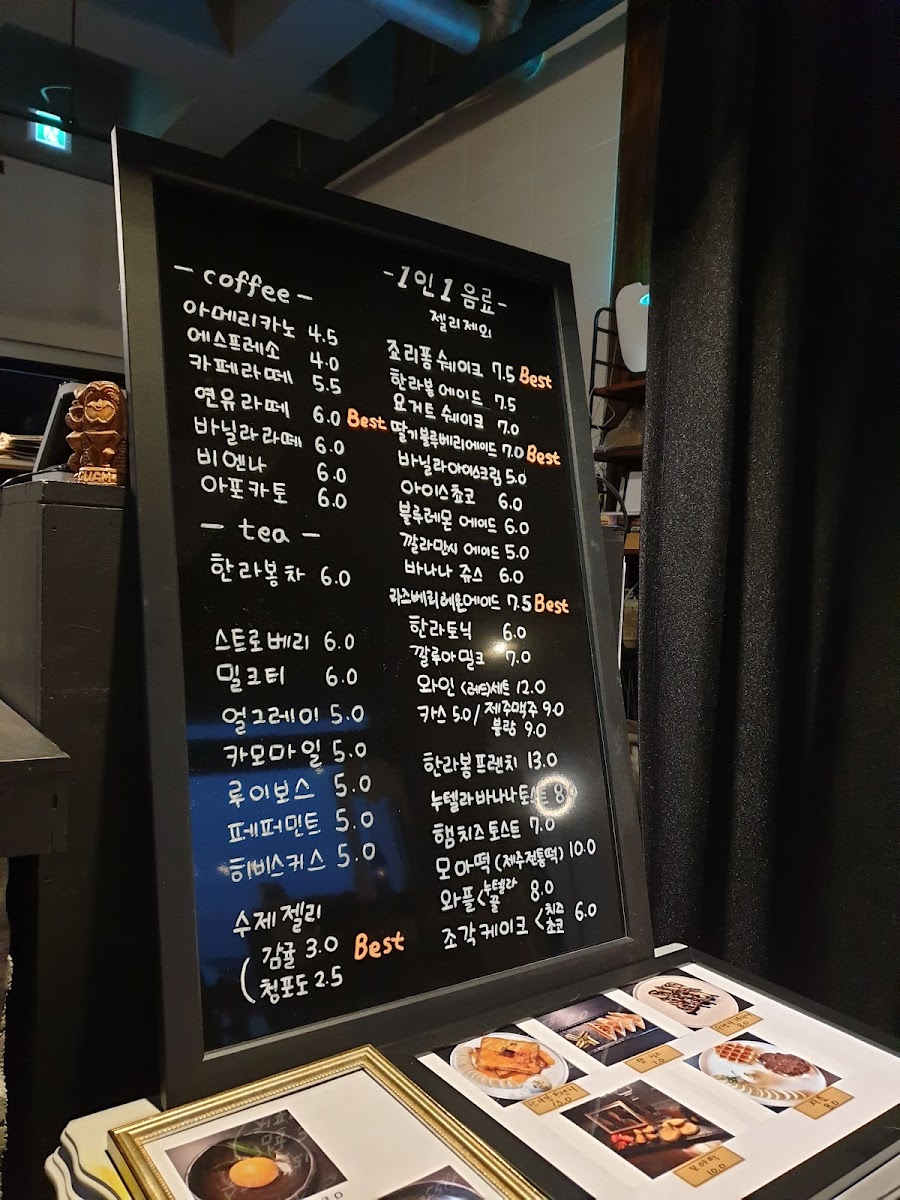 - coffee -
아메리카노 4.5
에스프레소 4.0
카페라떼 5.5
연유라떼 6.0 Best
바닐라라떼 6.0
비엔나 6.0
아포카토 6.0
- tea -
한라봉차 6.0
스트로베리 6.0
밀크티 6.0
얼그레이 5.0
카모마일 5.0
루이보스 5.0
페퍼민트 5.0
히비스커스 5.0
수제젤리
감귤 3.0 Best
청포도 2.5
-1인 1음료-
젤리제외
죠리퐁쉐이크 7.5 Best
한라봉에이드 7.5
요거트쉐이크 7.0
딸기블루베리에이드 7.0 Best
바닐라아이스크림 5.0
아이스쵸코 6.0
블루레몬에이드 6.0
깔라만시에이드 5.0
바나나쥬스 6.0
라즈베리레몬에이드 7.5 Best
한라토닉 6.0
깔루아밀크 7.0
와인<레드>세트 12.0
카스 5.0/제주맥주 9.0
불량 9.0
한라봉프렌치 13.0
누텔라바나나토스트 8.
햄치즈토스트 7.0
모아떡(제주전통떡) 10.0
와플<누텔라 8.0
꿀
조각케이크<치즈 6.0
쵸코
13.0
7.0
8.0
8.0
10.0